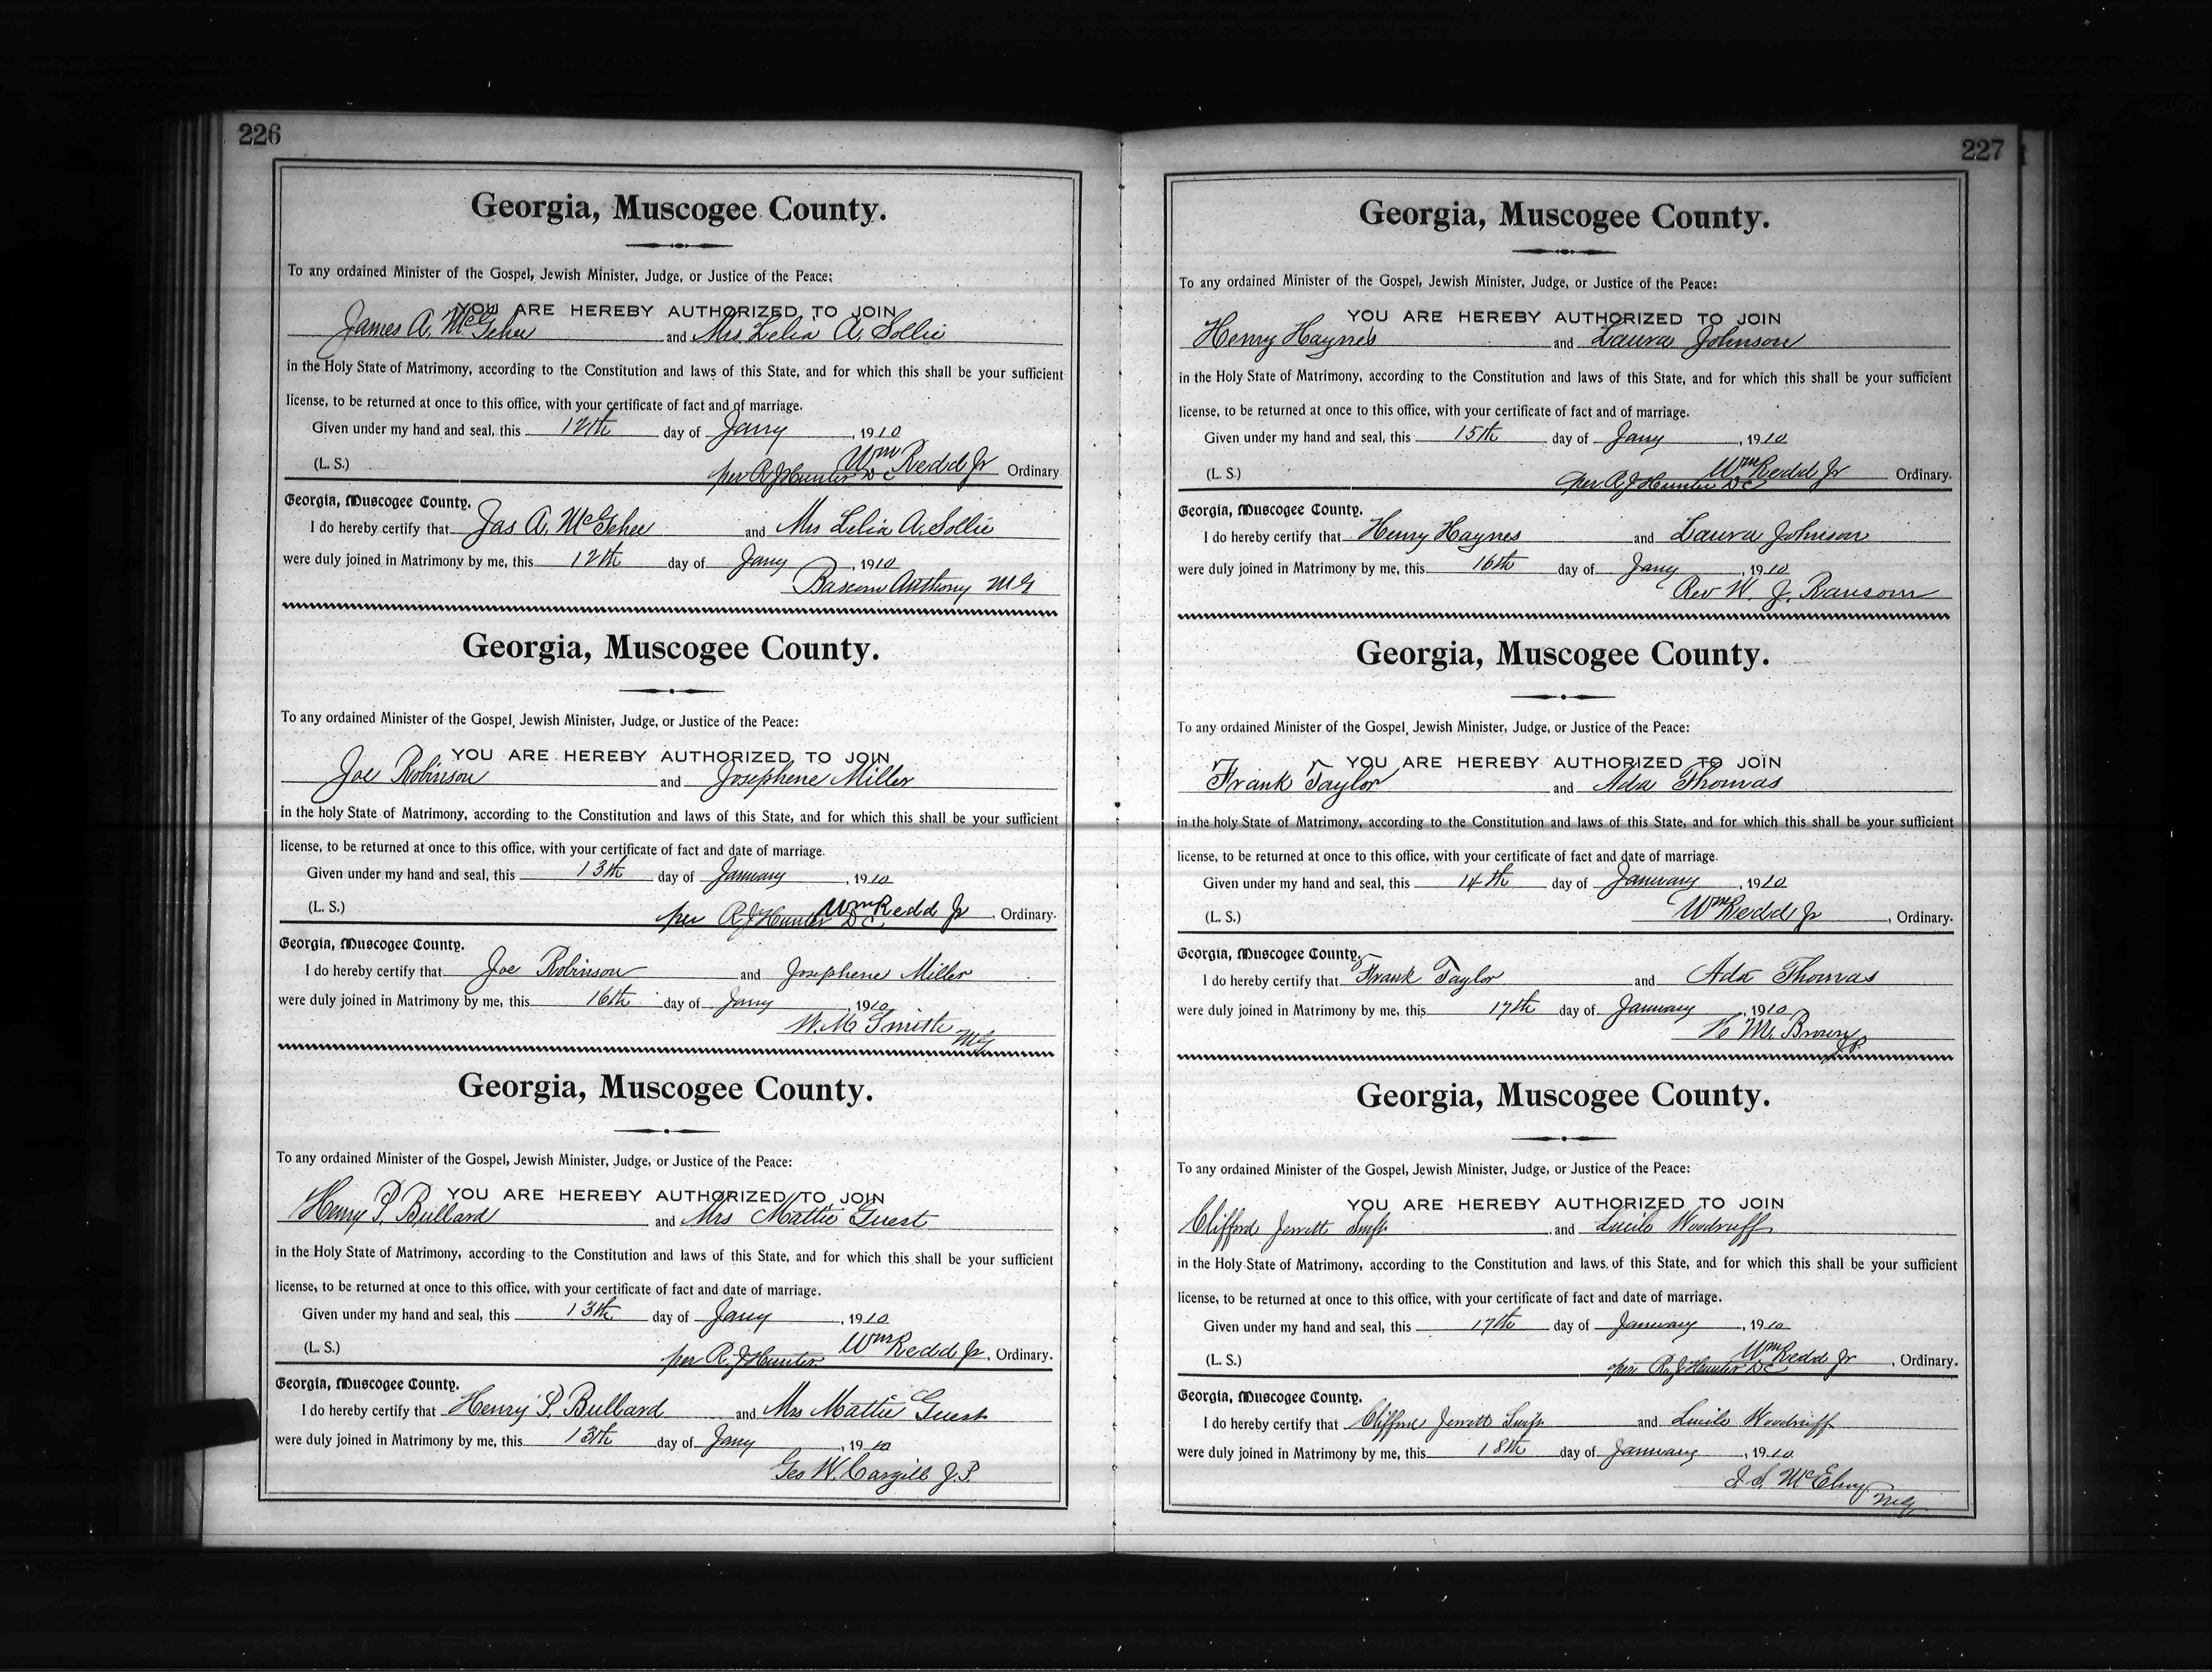 226
Georgia, Muscogee County.
To any ordained Minister of the Gospel, Jewish Minister, Judge, or Justice of the Peace:
YOU ARE HEREBY AUTHORIZED TO JOIN
James A. McGehee and Mrs Lelia A. Sollie
in the Holy State of Matrimony, according to the Constitution and laws of this State, and for which this shall be your sufficient
license, to be returned at once to this office, with your certificate of fact and of marriage.
Given under my hand and seal, this 12th day of Jany, 1910
(L. S.) Wm Redd Jr Ordinary
per R J Hunter DC
Georgia, Muscogee County.
I do hereby certify that Jas A. McGehee and Mrs Lelia A. Sollie
were duly joined in Matrimony by me, this 12th day of Jany, 1910
Bascom Anthony MG
Georgia, Muscogee County.
To any ordained Minister of the Gospel, Jewish Minister, Judge, or Justice of the Peace:
YOU ARE HEREBY AUTHORIZED TO JOIN
Joe Robinson and Josephene Miller
in the holy State of Matrimony, according to the Constitution and laws of this State, and for which this shall be your sufficient
license, to be returned at once to this office, with your certificate of fact and date of marriage.
Given under my hand and seal, this 13th day of January, 1910
(L. S.) Wm Redd Jr, Ordinary.
per R J Hunter DC
Georgia, Muscogee County.
I do hereby certify that Joe Robinson and Josephene Miller
were duly joined in Matrimony by me, this 16th day of Jany, 1910
W. M Smith MG
Georgia, Muscogee County.
To any ordained Minister of the Gospel, Jewish Minister, Judge, or Justice of the Peace:
YOU ARE HEREBY AUTHORIZED TO JOIN
Henry P. Bullard and Mrs Mattie Guest
in the Holy State of Matrimony, according to the Constitution and laws of this State, and for which this shall be your sufficient
license, to be returned at once to this office, with your certificate of fact and date of marriage.
Given under my hand and seal, this 13th day of Jany, 1910
(L. S.) Wm Redd Jr, Ordinary.
per R. J Hunter
Georgia, Muscogee County.
I do hereby certify that Henry P. Bullard and Mrs Mattie Guest
were duly joined in Matrimony by me, this 13th day of Jany, 1910
Geo W. Cargill J.P.
227
Georgia, Muscogee County.
To any ordained Minister of the Gospel, Jewish Minister, Judge, or Justice of the Peace:
YOU ARE HEREBY AUTHORIZED TO JOIN
Henry Haynes and Laura Johnson
in the Holy State of Matrimony, according to the Constitution and laws of this State, and for which this shall be your sufficient
license, to be returned at once to this office, with your certificate of fact and of marriage.
Given under my hand and seal, this 15th day of Jany, 1910
(L. S.) Wm Redd Jr Ordinary.
per R J Hunter DC
Georgia, Muscogee County.
I do hereby certify that Henry Haynes and Laura Johnson
were duly joined in Matrimony by me, this 16th day of Jany, 1910
Rev W. J. Ransom
Georgia, Muscogee County.
To any ordained Minister of the Gospel, Jewish Minister, Judge, or Justice of the Peace:
YOU ARE HEREBY AUTHORIZED TO JOIN
Frank Taylor and Ada Thomas
in the holy State of Matrimony, according to the Constitution and laws of this State, and for which this shall be your sufficient
license, to be returned at once to this office, with your certificate of fact and date of marriage.
Given under my hand and seal, this 14th day of January, 1910
(L. S.) Wm Redd Jr, Ordinary.
Georgia, Muscogee County.
I do hereby certify that Frank Taylor and Ada Thomas
were duly joined in Matrimony by me, this 17th day of January, 1910
M. Brown J.P.
Georgia, Muscogee County.
To any ordained Minister of the Gospel, Jewish Minister, Judge, or Justice of the Peace:
YOU ARE HEREBY AUTHORIZED TO JOIN
Clifford Jerrett Swift and Lucile Woodruff
in the Holy State of Matrimony, according to the Constitution and laws of this State, and for which this shall be your sufficient
license, to be returned at once to this office, with your certificate of fact and date of marriage.
Given under my hand and seal, this 17th day of January, 1910
(L. S.) Wm Redd Jr, Ordinary.
per R. J Hunter DC
Georgia, Muscogee County.
I do hereby certify that Clifford Jerrett Swift and Lucile Woodruff
were duly joined in Matrimony by me, this 18th day of January, 1910
McElroy MG